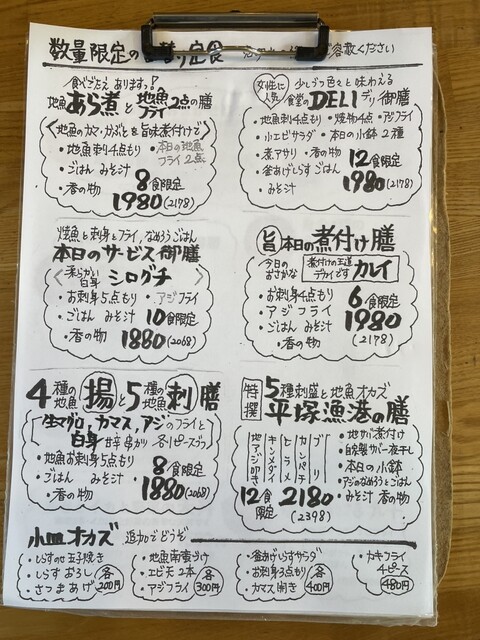 数量限定の日替り定食
ご容赦ください
食べごたえあります!
地魚あら煮と地魚フライ2点の膳
地魚のカマ・かぶとを旨味煮付けで
・地魚刺4点もり ・本日の地魚フライ2点
・ごはん みそ汁
・香の物 8食限定
1980(2178)
女性に人気 少しづつ色々と味わえる
食堂のDELIデリ御膳
・地魚刺4点もり ・焼物4点 ・アジフライ
・小エビサラダ ・本日の小鉢2種
・煮アサリ ・香の物 12食限定
・釜あげしらすごはん
・みそ汁 1980(2178)
焼魚と刺身とフライ,なめろうごはん
本日のサービス御膳
柔らかい白身 シログチ
・お刺身5点もり ・アジフライ
・ごはん みそ汁 10食限定
・香の物 1880(2068)
旨 本日の煮付け膳
今日のおさかな 煮付けの王道デカイです カレイ
・お刺身4点もり 6食限定
・アジフライ
・ごはん みそ汁 1980
・香の物 (2178)
4種の地魚揚と5種の地魚刺膳
生マグロ,カマス,アジのフライと
白身甘辛串かつ 各1ピースづつ
・地魚お刺身5点もり 8食限定
・ごはん みそ汁
・香の物 1880(2068)
特撰 5種刺盛と地魚オカズ
平塚漁港の膳
地アジ叩き
キンメダイ
ヒラメ
カンパチ
ブリ
・地サバ煮付け
・自家製サバ一夜干し
・本日の小鉢
・アジのなめろうとごはん
・みそ汁 香の物
12食限定 2180
(2398)
小皿オカズ 追加でどうぞ
・しらすのせ玉子焼き
・しらすおろし
・さつまあげ 各200円
・地魚南蛮づけ
・エビ天2本
・アジフライ 各300円
・釜あげしらすサラダ
・お刺身3点もり
・カマス開き 各400円
・カキフライ
4ピース
480円